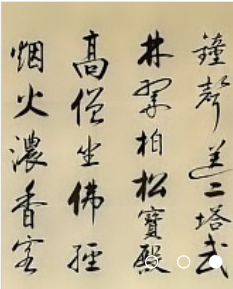 鐘聲送二塔武
林翠柏松寶殿
高僧坐佛經
烟火濃香客